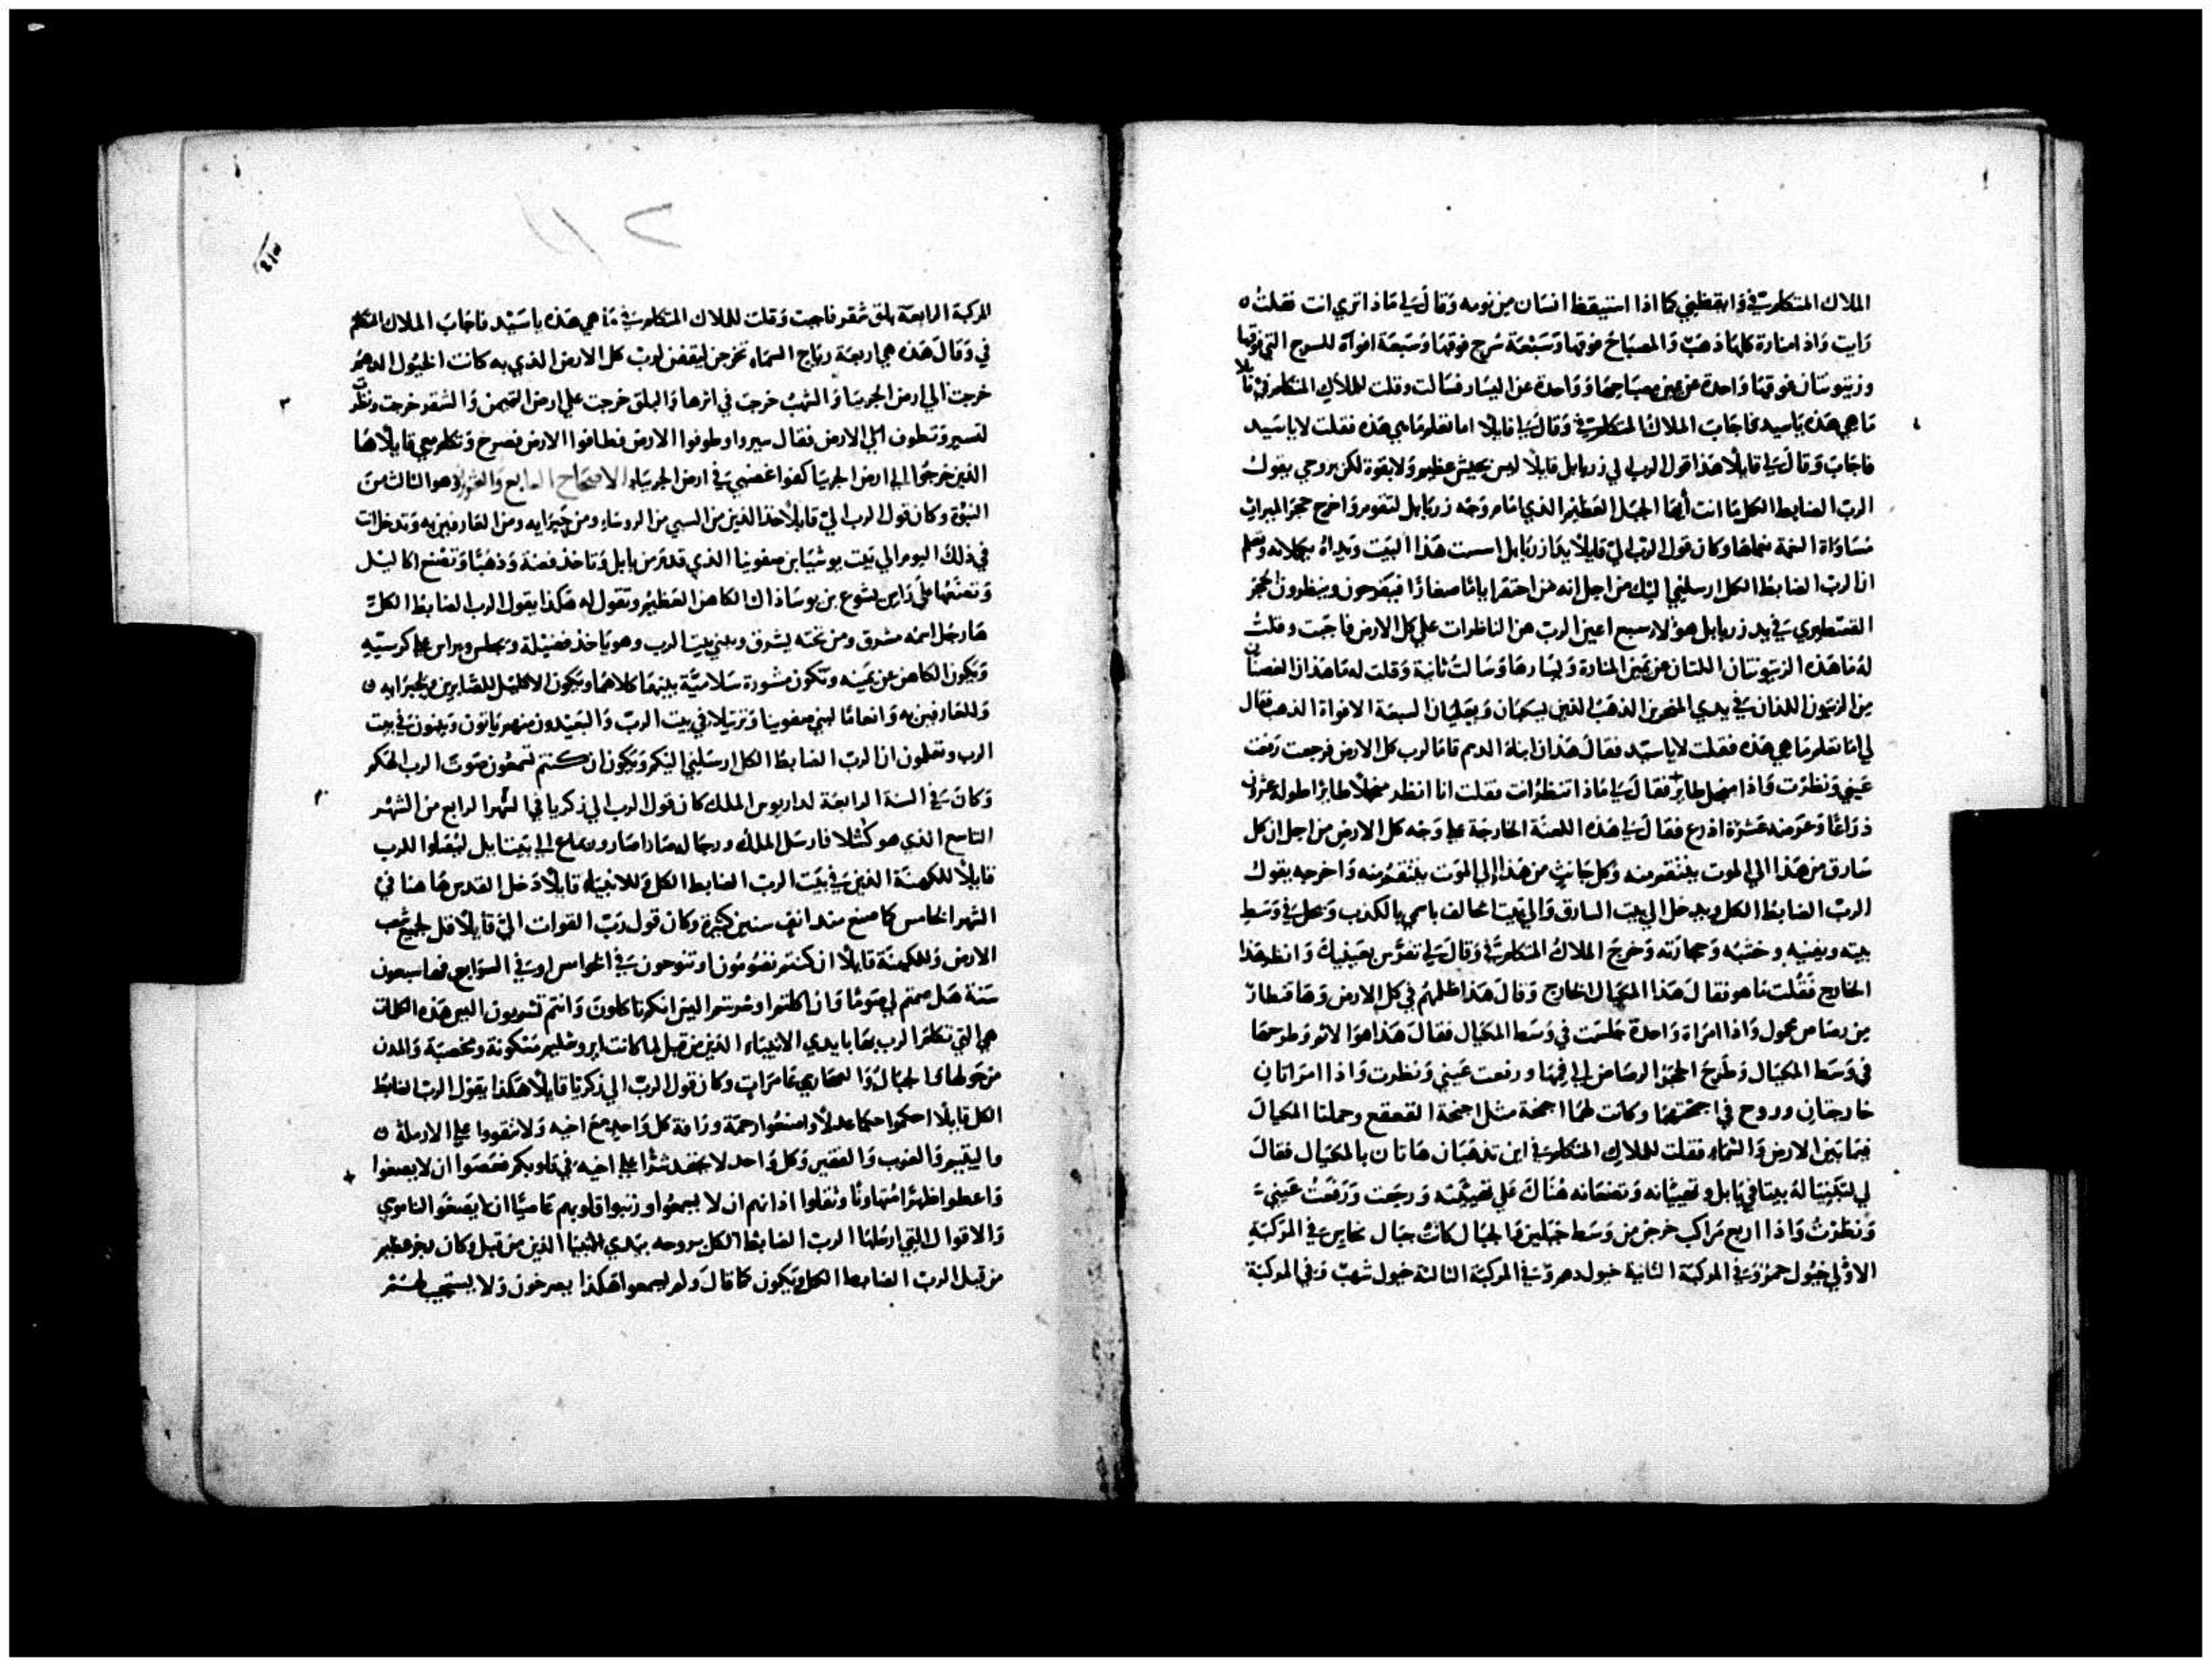 الملاك المتكلم فيّ وايقظني كما اذا استيقظ انسان من نومه وقال لي ماذا تري انت فقلت
رايت واذا منارة كلها ذهب والمصباح فوقها وسبعة سرج فوقها وسبعة افواه للسرج التي فوقها
وزيتونتان فوقها واحدة عن يمين مصباحها وواحدة عن اليسار فسالت وقلت للملاك المتكلم فيّ قايلا
ما هي هذه ياسيد فاجاب الملاك المتكلم فيّ وقال لي قايلا اما تعلم ما هي هذه فقلت لا ياسيد
فاجاب وقال لي قايلا هذا قول الرب الي زربابل قايلا ليس بجيش عظيم ولا بقوة لكن بروحي يقول
الرب الضابط الكل ما انت أيها الجبل العظيم الذي امام وجه زربابل لتقوم واخرج حجر الميراث
مساواة النعمة نعماها وكان قول الرب اليّ قايلا يدا زربابل اسست هذا البيت ويداه يكملانه وتعلم
ان الرب الضابط الكل ارسلني اليك من اجل انه من احتقر اياما صغارا فيفرحون وينظرون الحجر
القسطيري في يد زربابل هولا سبع اعين الرب هن الناظرات علي كل الارض فاجبت وقلت
له ما هذه الزيتونتان اللتان عن يمين المنارة ويسارها وسالت ثانية وقلت له ما هذان الغصنان
من الزيتون اللذان في يدي المنخرين الذهب الذين يسكبان ويجليان السبعة الافواه الذهب فقال
لي اما تعلم ما هي هذه فقلت لا ياسيد فقال هذان ابناء الدسم قاما لرب كل الارض فرجعت رفعت
عيني ونظرت واذا منجل طاير فقال لي ماذا تنظر انت فقلت انا انظر منجلا طايرا طوله عشرون
ذراعا وعرضه عشرة اذرع فقال لي هذه اللعنة الخارجة علي وجه كل الارض من اجل ان كل
سارق من هذا الي الموت ينتقم منه وكل حانث من هذا الي الموت ينتقم منه واخرجه يقول
الرب الضابط الكل ويدخل الي بيت السارق والي بيت الحالف باسمي بالكذب ويحل في وسط
بيته ويفنيه وخشبه وحجارته وخرج الملاك المتكلم فيّ وقال لي تفرس بعينيك وانظر هذا
الخارج فقلت ما هو فقال هذا المكيال الخارج وقال هذا ظلمهم في كل الارض وها قنطار
من رصاص محمول واذا امراة واحدة جلست في وسط المكيال فقال هذا هو الاثم وطرحها
في وسط المكيال وطرح الحجر الرصاص الي فمها ورفعت عيني ونظرت واذا امراتان
خارجتان وروح في اجنحتهما وكانت لهما اجنحة مثل اجنحة القعقع وحملتا المكيال
فيما بين الارض والسماء فقلت للملاك المتكلم فيّ اين تذهبان هاتان بالمكيال فقال
لي لتبنيا له بيتا في بابل وتهييانه وتضعانه هناك علي تهييته ورجعت ورفعت عيني
ونظرت واذا اربع مراكب خرجن من وسط جبلين والجبال كانت جبال نحاس في المركبة
الاولي خيول حمر وفي المركبة الثانية خيول دهم وفي المركبة الثالثة خيول شهب وفي المركبة
المركبة الرابعة بلق شقر فاجبت وقلت للملاك المتكلم فيّ ما هي هذه ياسيد فاجاب الملاك المتكلم
في وقال هذه هي اربعة رياح السماء تخرج ليقفن لرب كل الارض الذي به كانت الخيول الدهم
خرجت الي ارض الجربيا والشهب خرجت في اثرها والبلق خرجت علي ارض التيمن والشقر خرجت ونظرت
لتسير وتطوف الي الارض فقال سيروا وطوفوا الارض فطافوا الارض فصرخ وتكلم معي قايلا ها
الذين خرجوا الي ارض الجربيا كفوا غضبي في ارض الجربياء الاصحاح الرابع والعشرون هو الثالث من
النبوة وكان قول الرب اليّ قايلا خذ الذين من السبي من الروساء ومن خبرايه ومن العارفين به وتدخل انت
في ذلك اليوم الي بيت يوشيا ابن صفونيا الذي قدم من بابل وتاخذ فضة وذهبا وتصنع اكاليل
وتضعها علي راس يشوع بن يوساذاك الكاهن العظيم وتقول له هكذا يقول الرب الضابط الكل
ها رجل اسمه مشرق ومن تحته يشرق ويبني بيت الرب وهو ياخذ فضيلة ويجلس ويراس علي كرسيه
ويكون الكاهن عن يمينه وتكون مشورة سلامية بينهما كلاهما ويكون الاكليل للصابرين ولخبرايه
وللعارفين به وانعاما لبني صفونيا وترتيلا في بيت الرب والبعيدون منهم ياتون ويبنون في بيت
الرب وتعلمون ان الرب الضابط الكل ارسلني اليكم ويكون ان كنتم تسمعون صوت الرب الهكم
وكان في السنة الرابعة لداريوس الملك كان قول الرب الي زكريا في الشهر الرابع من الشهر
التاسع الذي هو كشلا فارسل الملك ورجاله سارا صار وربماع الي بيت ايل ليتملوا للرب
قايلا للكهنة الذين في بيت الرب الضابط الكل وللانبياء قايلا دخل القدس هاهنا في
الشهر الخامس كما صنع منذ انف سنين كثيرة وكان قول رب القوات اليّ قايلا قل لجميع شعب
الارض وللكهنة قايلا ان كنتم تصومون او تنوحون في الخوامس او في السوابع فها سبعون
سنة هل صمتم لي صوما وان اكلتم او شربتم اليس انكم تاكلون وانتم تشربون اليس هذه الكلمات
هي التي تكلم الرب بها بايدي الانبياء الذين من قبل لما كانت ايروشليم مسكونة ومخصبة والمدن
من حولها والجبال والصحاري عامرات وكان قول الرب الي زكريا قايلا هكذا يقول الرب الضابط
الكل قايلا احكموا حكما عدلا واصنعوا رحمة ورافة كل واحد مع اخيه ولا تقووا علي الارملة
واليتيم والغريب والفقير وكل واحد لا يحقد شرا علي اخيه في قلوبكم فعصوا ان لا يصغوا
واعطوا ظهرا متهاونا وثقلوا اذانهم ان لا يسمعوا ورتبوا قلوبهم عاصيا ان لا يصغوا لناموسي
والاقوال التي ارسلها الرب الضابط الكل بروحه بيدي الانبيا الذين من قبل وكان رجز عظيم
من قبل الرب الضابط الكل ويكون كما قال ولم يسمعوا هكذا يصرخون ولا يستجيب لهم